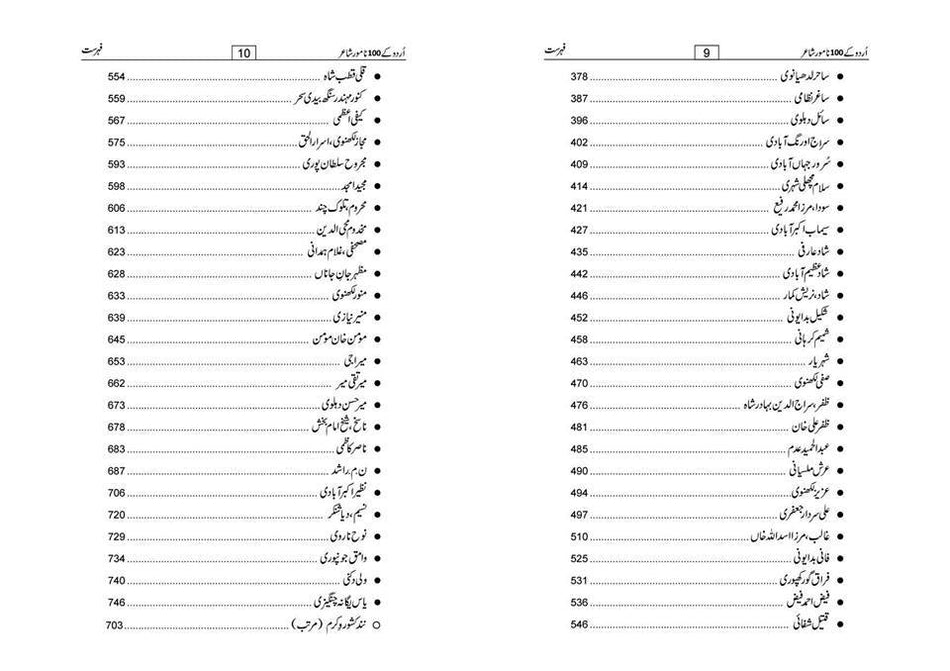 اُردو کے 100 نامور شاعر 9 فہرست
● ساحر لدھیانوی 378
● ساغر نظامی 387
● سائل دہلوی 396
● سراج اورنگ آبادی 402
● سُرور جہاں آبادی 409
● سلام مچھلی شہری 414
● سودا، مرزا محمد رفیع 421
● سیماب اکبر آبادی 427
● شاد عارفی 435
● شاد عظیم آبادی 442
● شاد، نریش کمار 446
● شکیل بدایونی 452
● شمیم کرہانی 458
● شہریار 463
● صفی لکھنوی 470
● ظفر، سراج الدین بہادر شاہ 476
● ظفر علی خان 481
● عبدالحمید عدم 485
● عرش ملسیانی 490
● عزیز لکھنوی 494
● علی سردار جعفری 497
● غالب، مرزا اسد اللہ خاں 510
● فانی بدایونی 525
● فراق گورکھپوری 531
● فیض احمد فیض 536
● قتیل شفائی 546
اُردو کے 100 نامور شاعر 10 فہرست
● قلی قطب شاہ 554
● کنور مہندر سنگھ بیدی سحر 559
● کیفی اعظمی 567
● مجاز لکھنوی، اسرار الحق 575
● مجروح سلطان پوری 593
● مجید امجد 598
● محروم، تلوک چند 606
● مخدوم محی الدین 613
● مصحفی، غلام ہمدانی 623
● مظہر جانِ جاناں 628
● منور لکھنوی 633
● منیر نیازی 639
● مومن خان مومن 645
● میراجی 653
● میر تقی میر 662
● میر حسن دہلوی 673
● ناسخ، شیخ امام بخش 678
● ناصر کاظمی 683
● ن م راشد 687
● نظیر اکبر آبادی 706
● نسیم، دیا شنکر 720
● نوح ناروی 729
● وامق جونپوری 734
● ولی دکنی 740
● یاس یگانہ چنگیزی 746
○ نند کشور وکرم (مرتب) 703